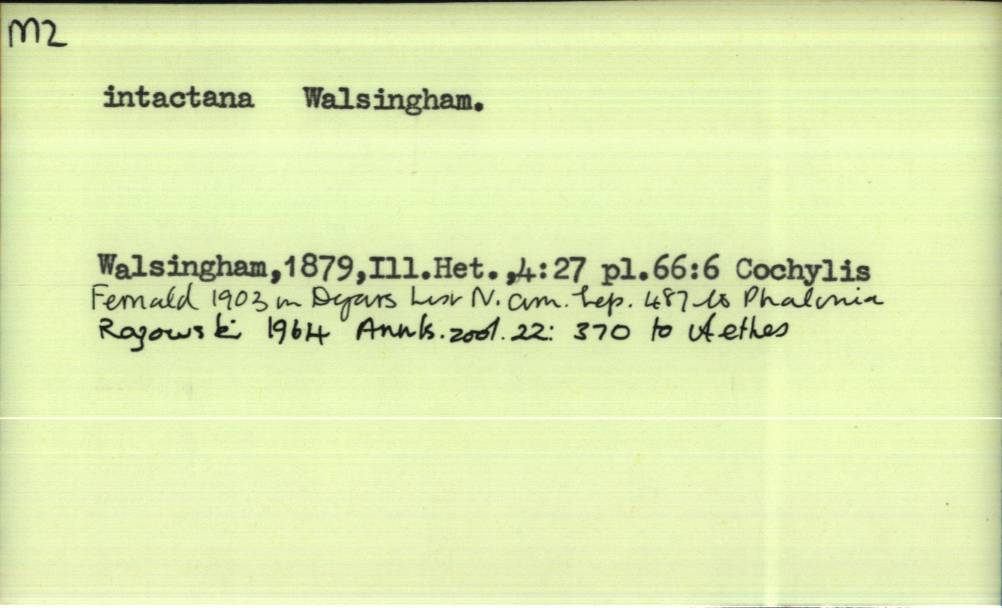 M2
intactana Walsingham.
Walsingham,1879,Ill.Het.,4:27 pl.66:6 Cochylis
Fernald 1903 in Dyars List N. Am. Lep. 487 to Phalonia
Razowski 1964 Annls. zool. 22: 370 to Aethes